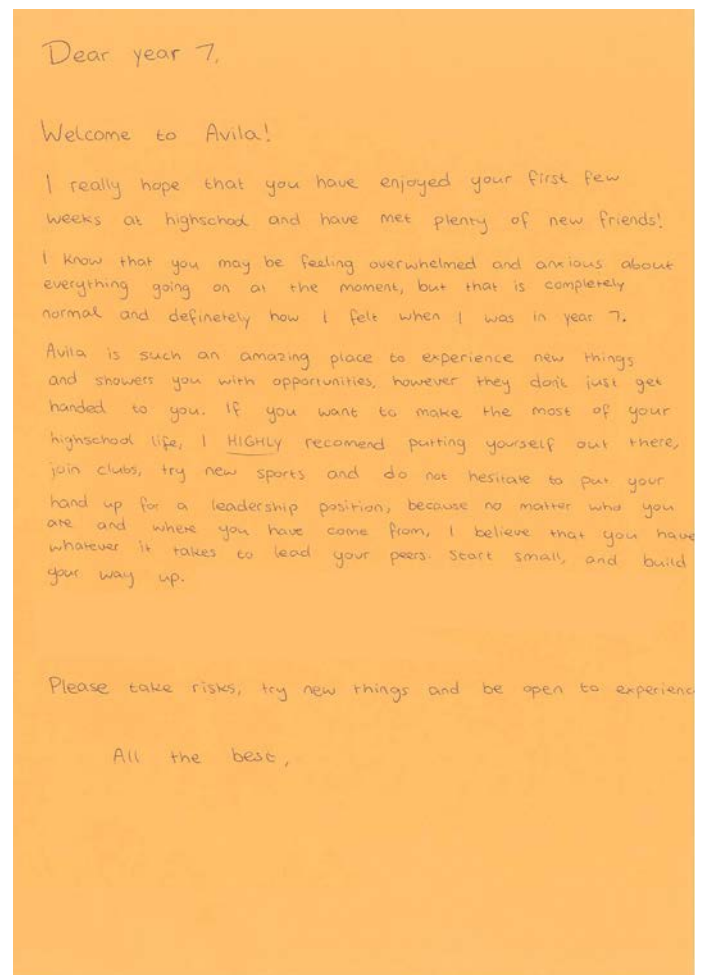 Dear year 7,
Welcome to Avila!
I really hope that you have enjoyed your first few
weeks at highschool and have met plenty of new friends!
I know that you may be feeling overwhelmed and anxious about
everything going on at the moment, but that is completely
normal and definetely how I felt when I was in year 7.
Avila is such an amazing place to experience new things
and showers you with opportunities, however they don't just get
handed to you. If you want to make the most of your
highschool life, I HIGHLY recomend putting yourself out there,
join clubs, try new sports and do not hesitate to put your
hand up for a leadership position, because no matter who you
are and where you have come from, I believe that you have
whatever it takes to lead your peers. Start small, and build
your way up.
Please take risks, try new things and be open to experienc
All the best,